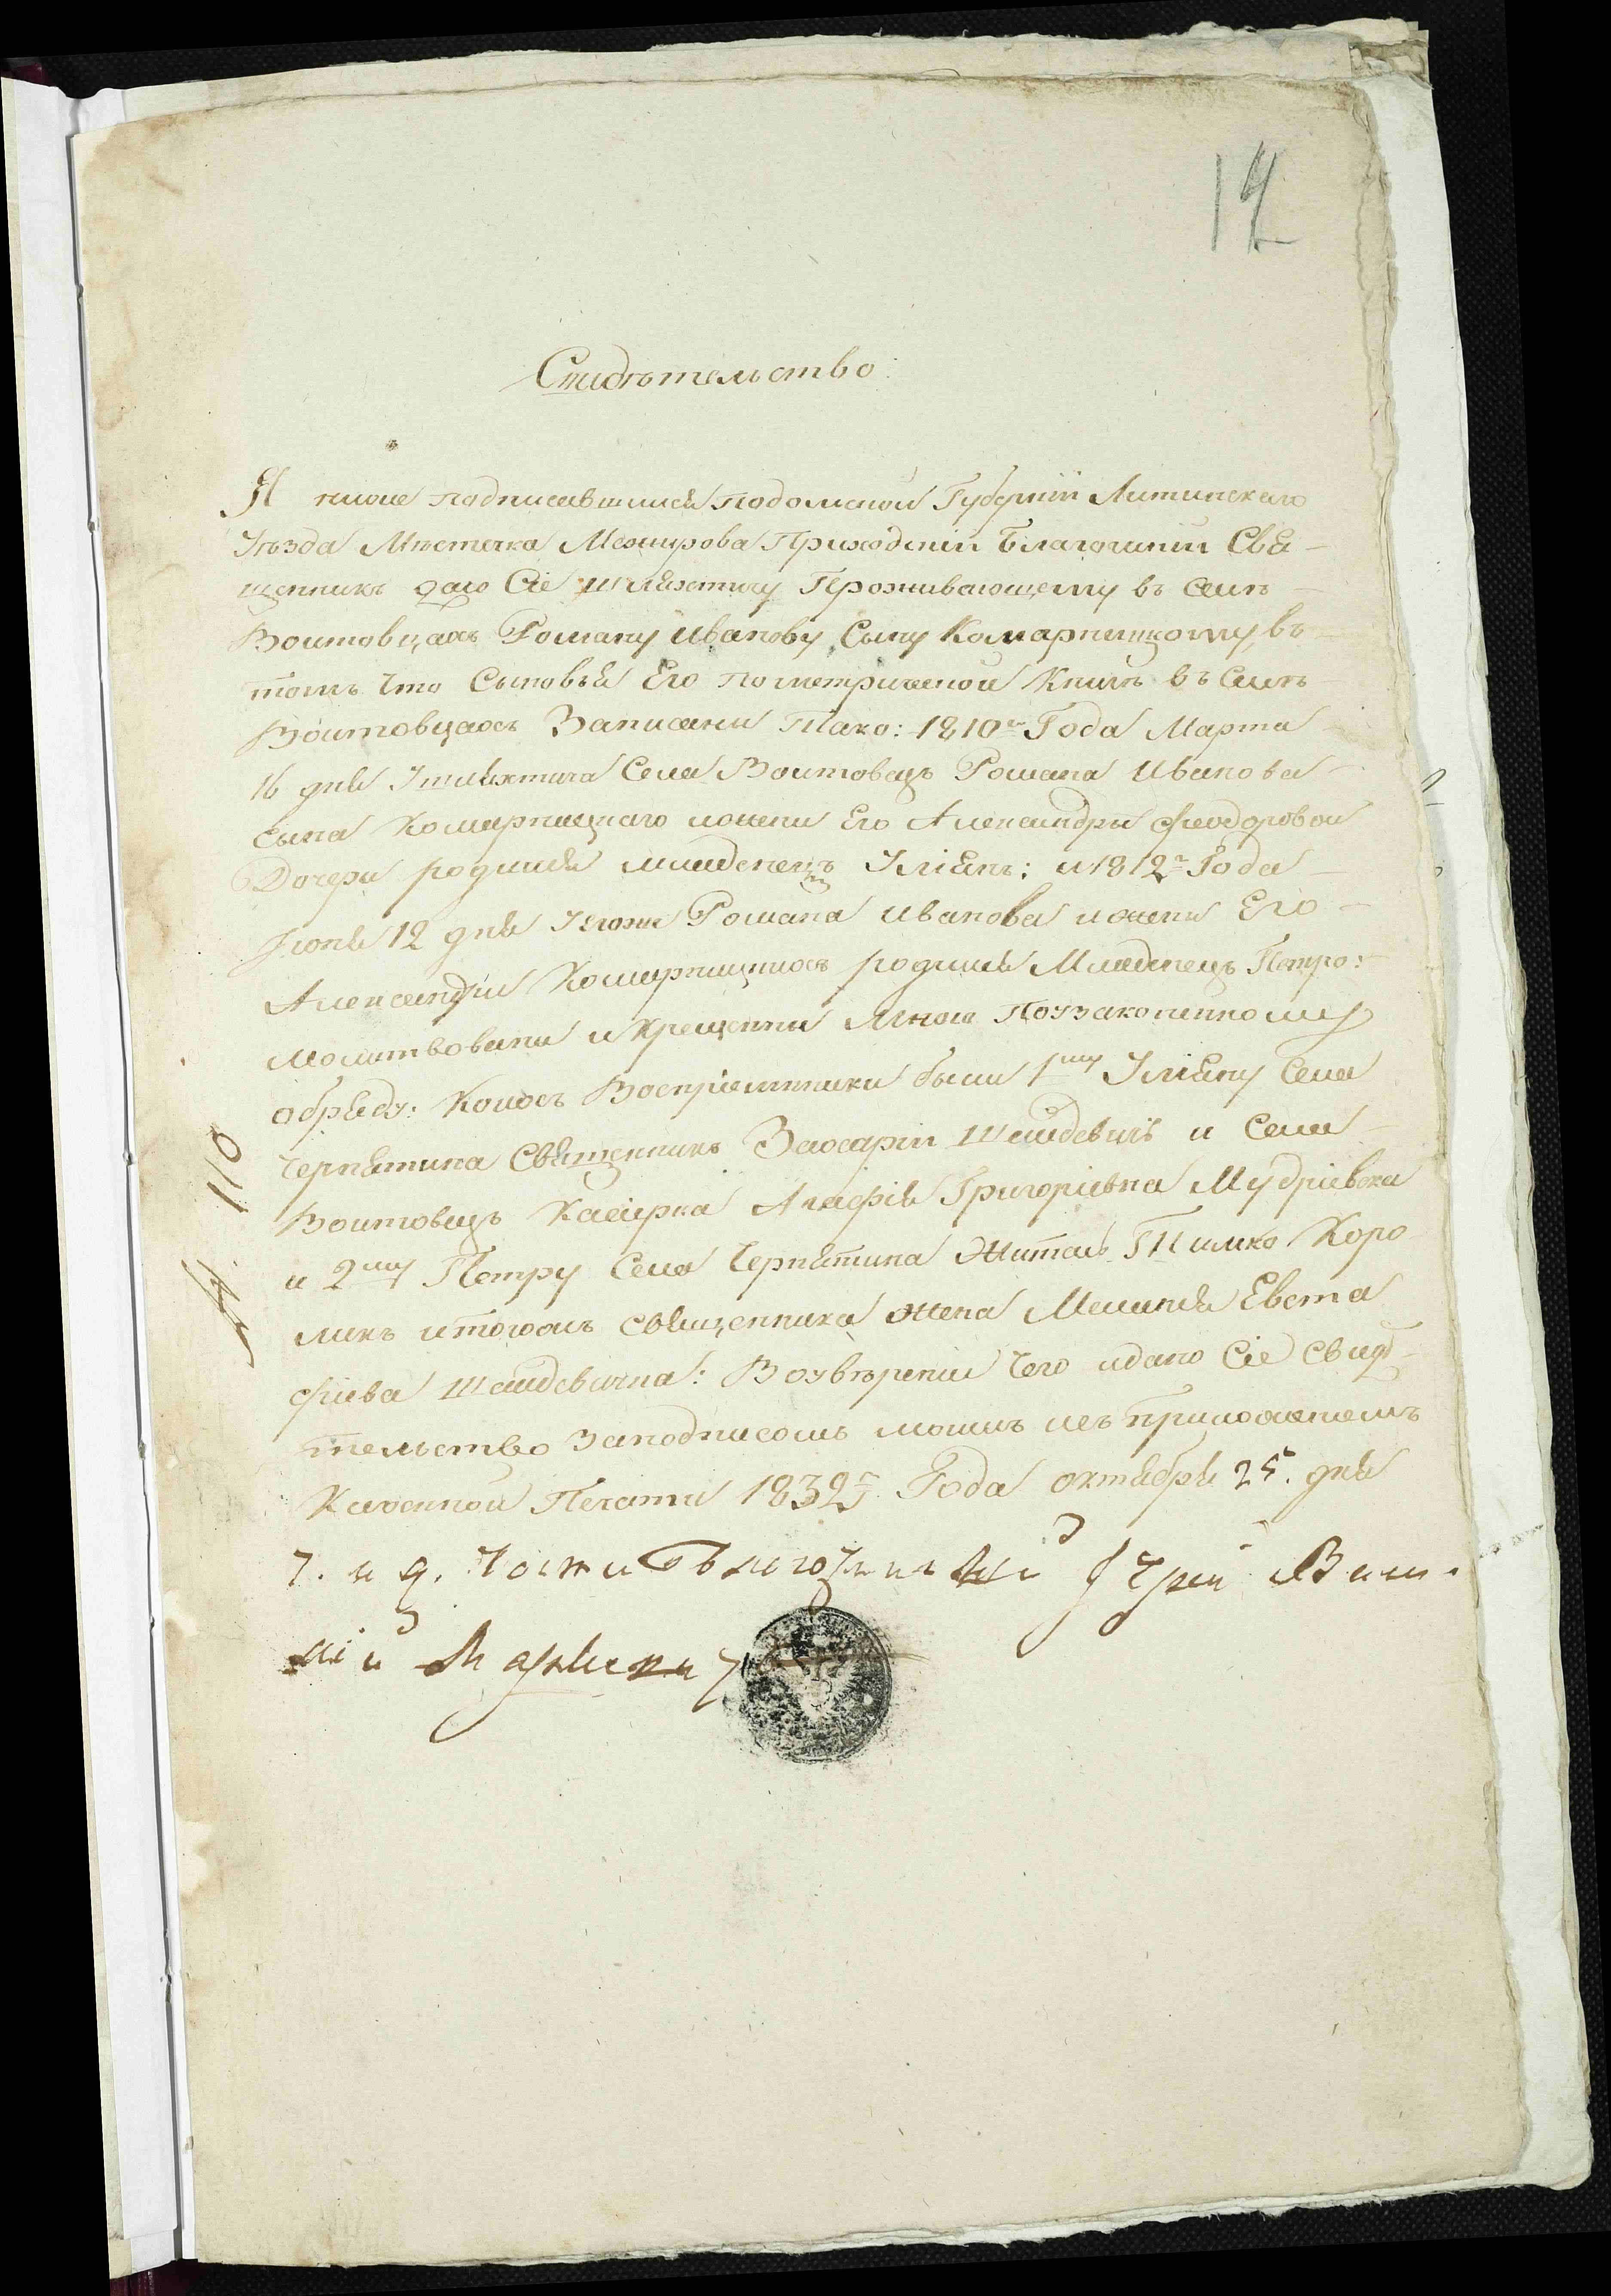 12
Свидѣтельство:
Я ниже подписавшийся Подолской Губерніи Литинскаго
Уѣзда Мѣстечка Межирова Приходскій Благочиній Свя-
щенникъ даю Сіе шляхтичу Проживающему въ Селѣ
Воитовцахъ Роману Иванову Сыну Комарницкому, въ
томъ что Сыновья Его по метрической Книгѣ въ Селѣ
Воитовцахъ Записани Тако: 1810го Года Марта
16 дня У шляхтича Села Воитовецъ Романа Иванова
сына Комарницкаго ижени Его Александры Феодоровой
Дочери родился младенецъ Уліянъ: и 1812го Года
Іюня 12 дня Тогоже Романа Иванова ижени Его
Александры Комарницкихъ родился Младенецъ Петро:
молитвовани и Крещенни Мною Поузаконенному
обряду: Коихъ Воспріемники были 1му Уліяну Села
Чернятина Священникъ Захарій Шейдевичъ и Села
Воитовецъ Касіерка Агафія Григоріевна Мудріевска
и 2му Петру Села Чернятина Житель Тимко Коро
ликъ итогожъ священника жена Меланія Евста
фиева Шейдевична: Воувѣреніи Чего идано Сіе Свидѣ
тельство Заподписомъ моимъ исъ приложеніемъ
Казенной Печати 1832го Года октября 25. дня
110